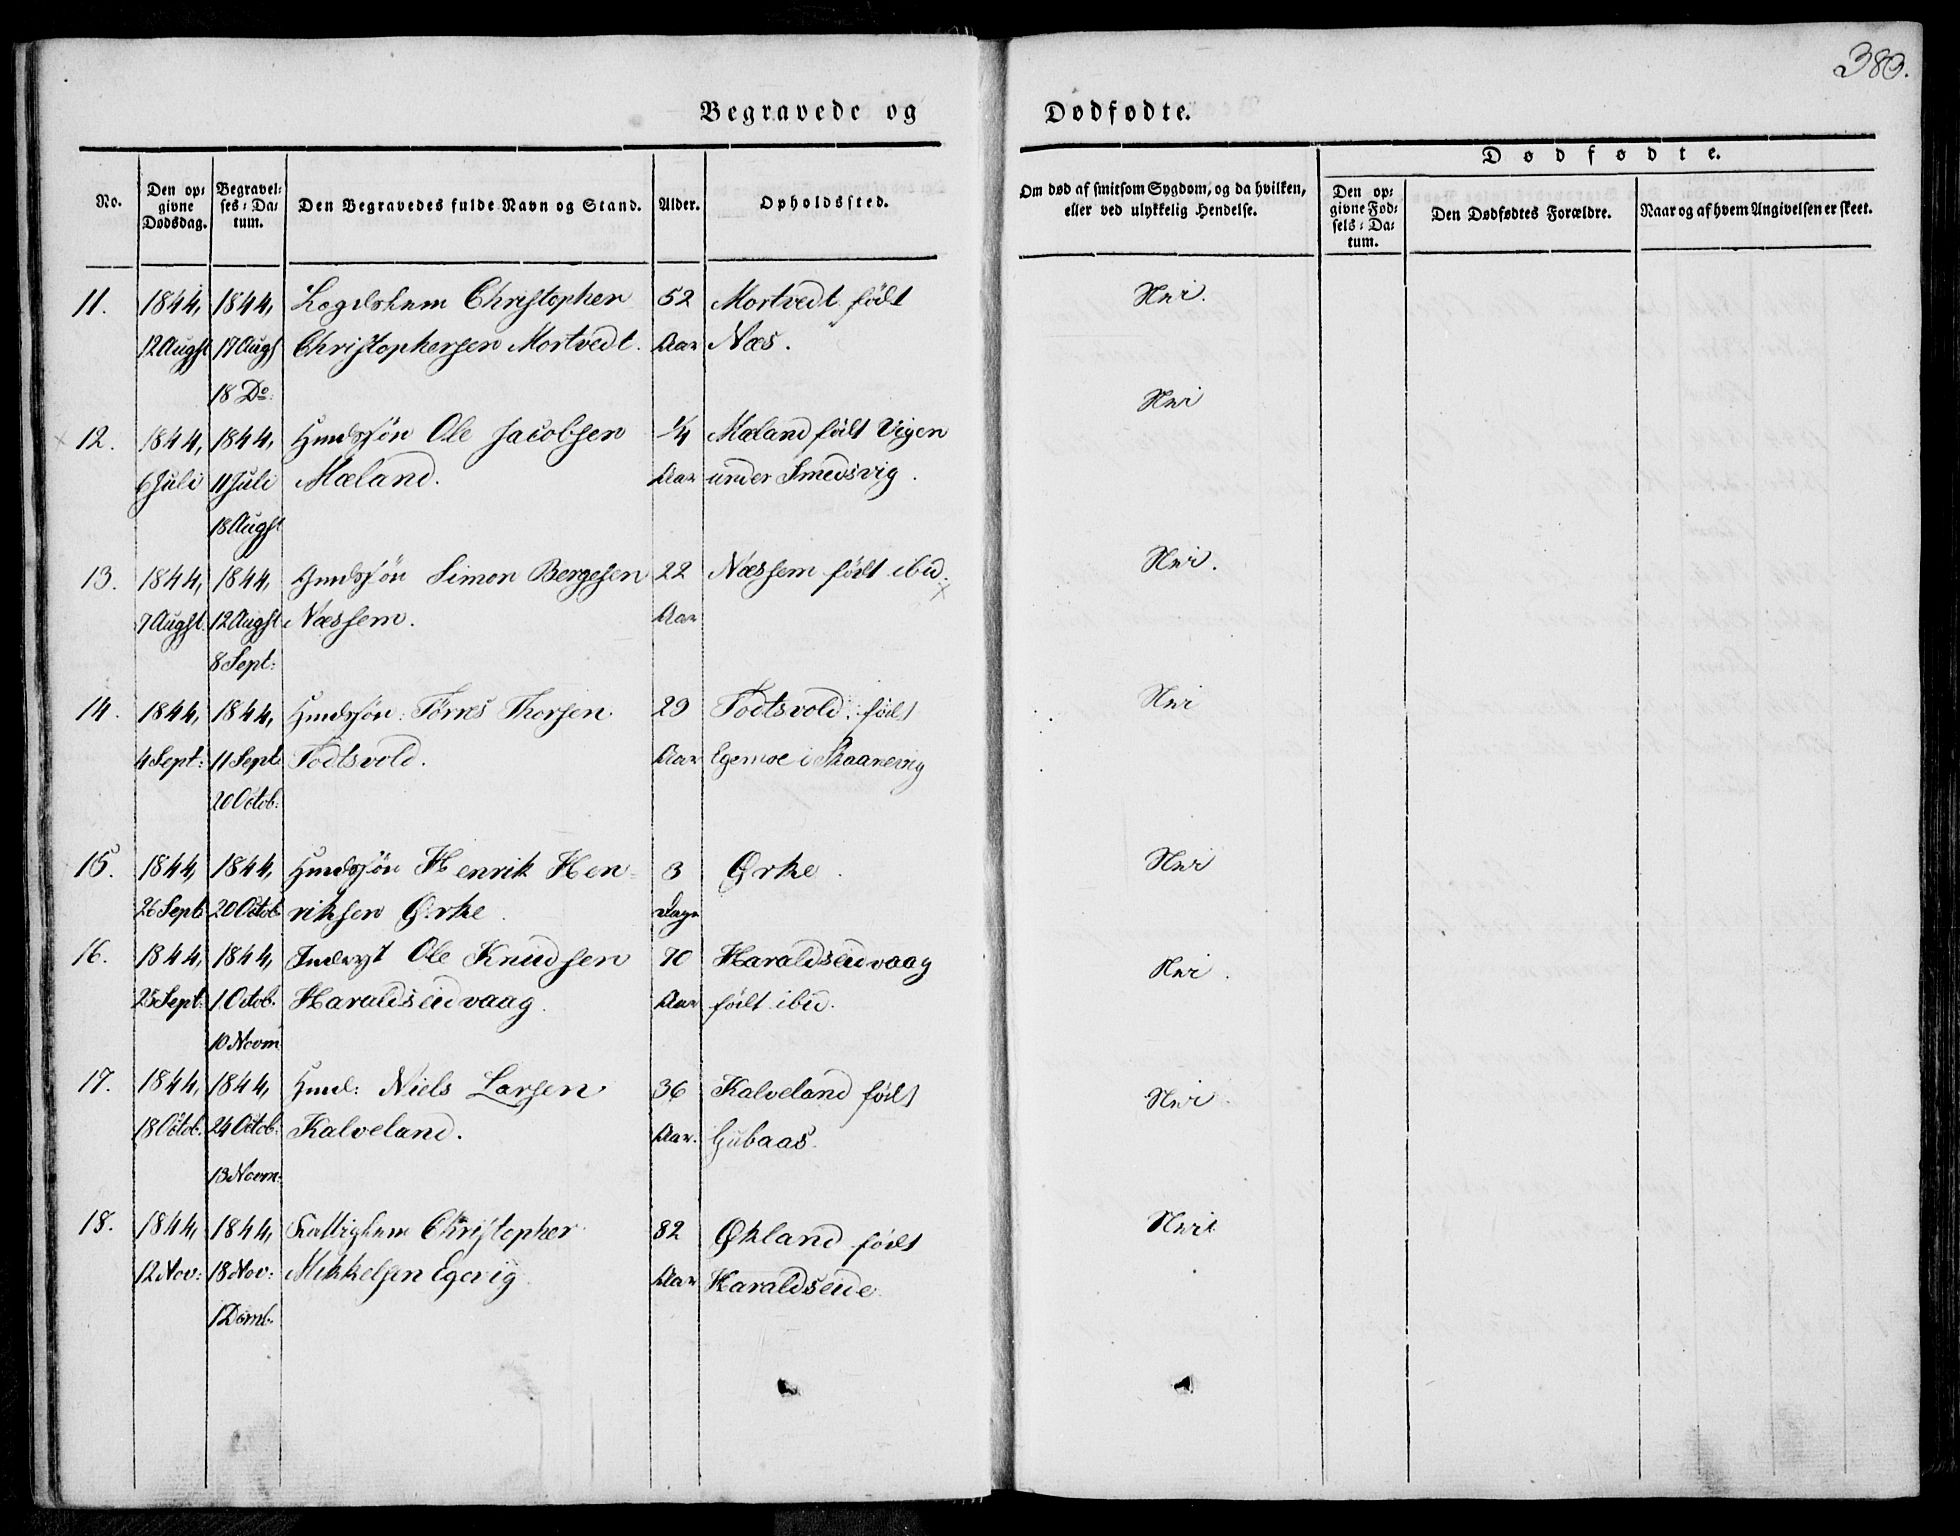 383.
Begravede og Dødfødte.
No.
Den op=
givne
Dødsdag.
Begravel=
ses=Da=
tum.
Den Begravedes fulde Navn og Stand.
Alder.
Opholdssted.
Om død af smitsom Sygdom, og da hvilken,
eller ved ulykkelig Hendelse.
Dødfødte.
Den op=
givne Fød=
sels=Da=
tum.
Den Dødfødtes Forældre.
Naar og af hvem Angivelsen er skeet.
11. 1844, 1844, Christopher 52 Mortvedt født Nei.
12 Augst 17 Augst Christophersen Mortvedt. Aar Næs.
18 Do:
12. 1844, 1844, Gmdssøn Ole Jacobsen 1/4 Mæland født Vigen Nei
6 Juli 11 Juli Mæland. Aar under Smedsvig.
18 Augst
13. 1844, 1844, Gmdssøn Simon Bergesen 22 Næssem født ibid. Nei.
7 Augst 12 Augst Næssem. Aar
8 Sept:
14. 1844, 1844, Gmdssøn: Tørres Thorsen 29 Todtsvold, født Nei
4 Sept: 11 Sept Todtsvold. Aar Egemoe i Skaanevig
20 Octob:
15. 1844, 1844, Gmdssøn Henrik Hen= 3 Ørke. Nei
26 Sept 20 Octob riksen Ørke. Dage
16. 1844, 1844, Ole Knudsen 70 Haraldseidvaag Nei.
25 Sept: 1 Octob. Haraldseidvaag. Aar født ibid.
10 Novm
17. 1844, 1844, Gmd: Niels Larsen 36 Kalveland født Nei.
18 Octob. 24 Octob: Kalveland. Aar. Gubaas.
13 Novm.
18. 1844, 1844, Christopher 82 Økland født Nei
12 Nov: 18 Nov: Mikkelsen Egevig. Aar Haraldseide.
1 Decmb.